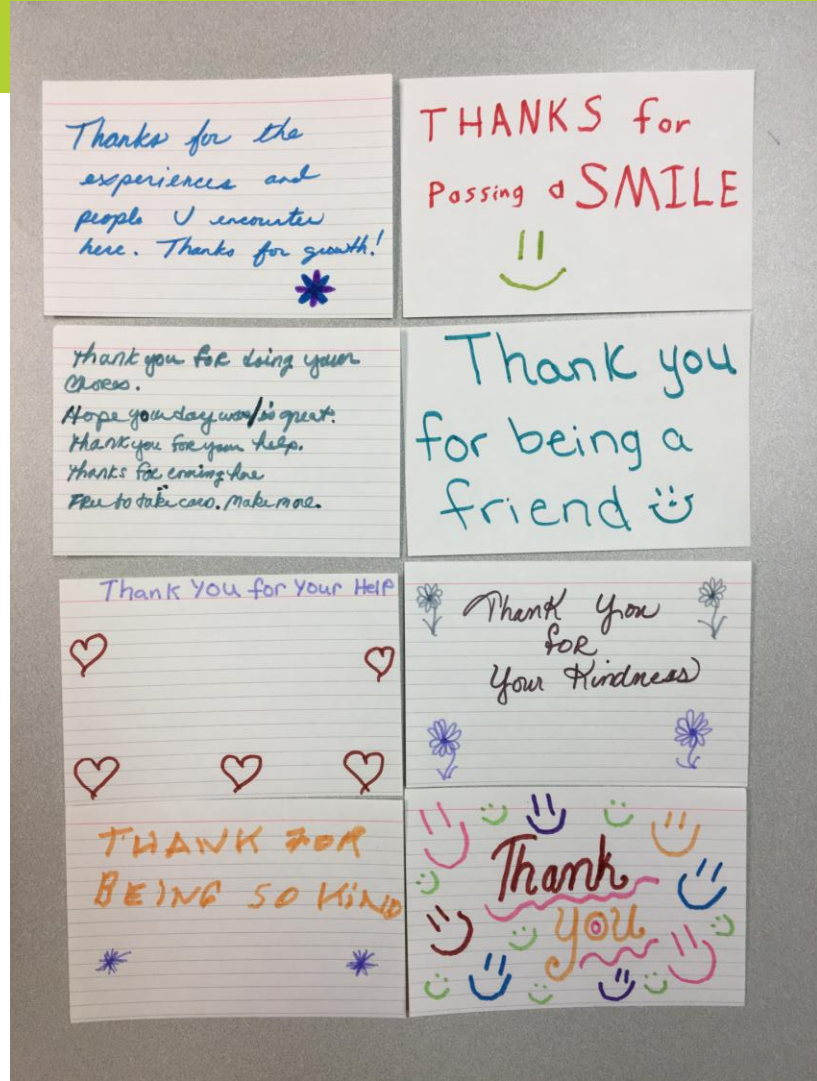 Thanks for the
experiences and
people U encounter
here. Thanks for growth!
THANKS for
Passing a SMILE
Thank you for doing your
Chores.
Hope your day was/is great.
Thank you for your help.
Thanks for coming here
Free to take card. Make more.
Thank you
for being a
friend
Thank You for Your Help
Thank You
FOR
Your Kindness
THANK FOR
BEING SO KIND
Thank
you